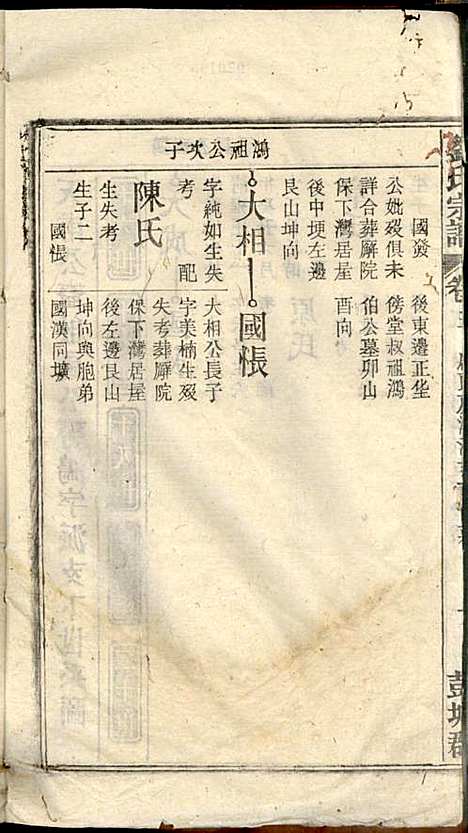 劉氏宗譜
卷
彭城郡
鴻祖公次子
國發
公妣歿俱未
詳合葬廨院
保下灣居屋
後中埂左邊
艮山坤向
後東邊正华
傍堂叔祖鴻
伯公墓卯山
酉向
大相
國悵
字純如生失
考 配
陳氏
生失考
生子二
國悵
大相公長子
字美楠生歿
失考葬廨院
保下灣居屋
後左邊艮山
坤向與胞弟
國漢同壙